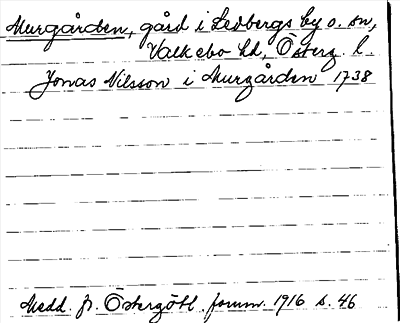 Murgården, gård i Ledbergs by o. sn,
Valkebo hd, Österg. l.
Jonas Nilsson i Murgården 1738
Medd. fr. Östergötl. fornm. 1916 s. 46